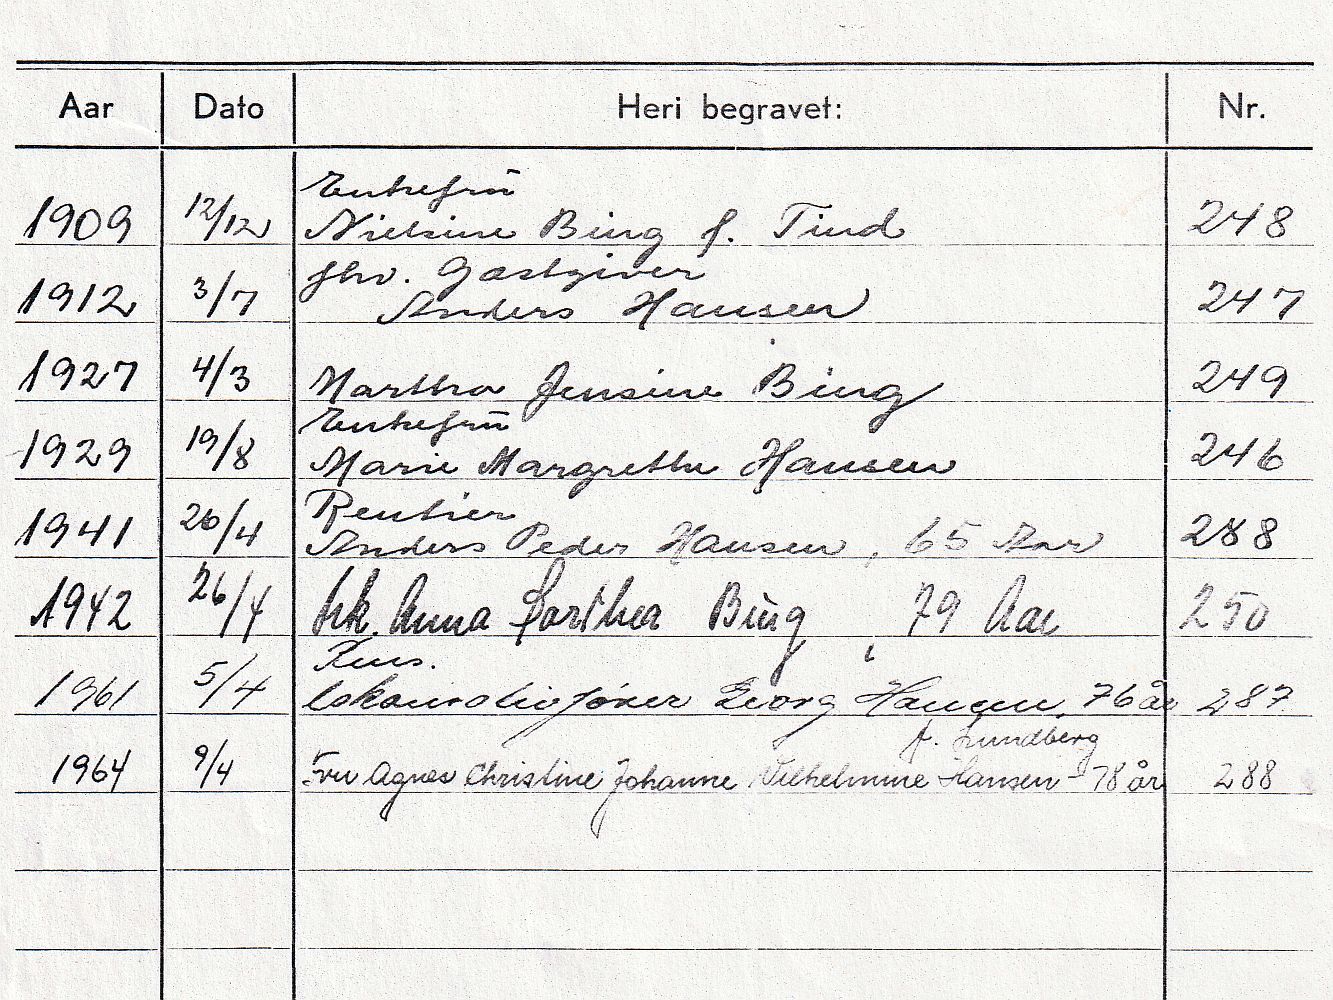 Aar Dato Heri begravet: Nr.
Enkefrū
1909 12/12 Nielsine Bing f. Tind 248
fhv. Gæstgiver
1912 3/7 Anders Hansen 247
1927 4/3 Martha Jensine Bing 249
Enkefrū
1929 19/8 Marie Margrethe Hansen 246
Rentier
1941 26/4 Anders Peder Hansen, 65 Aar 288
1942 26/4 frk. Anna Dorthea Bing, 79 Aar 250
Pens.
1961 5/4 lokomotivfører Georg Hansen, 76 år 287
f. Lundberg
1964 9/4 Fru Agnes Christine Johanne Vilhelmine Hansen - 78 år 288